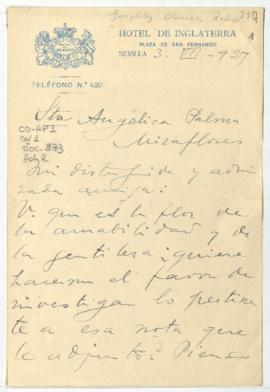 González Blanco, Pedro
HOTEL DE INGLATERRA
PLAZA DE SAN FERNANDO
SEVILLA 3. VII -927
TELÉFONO N.º 420
Sta Angélica Palma
Miraflores
CO-AP1
DOC-873
Fol. 2
Mi distinguida y admi
rada amiga:
V. que es la flor de
la amabilidad y de
la gentileza ¿quiere
hacerme el favor de
investigar lo pertinen
te a esa nota que
le adjunto? Pienso